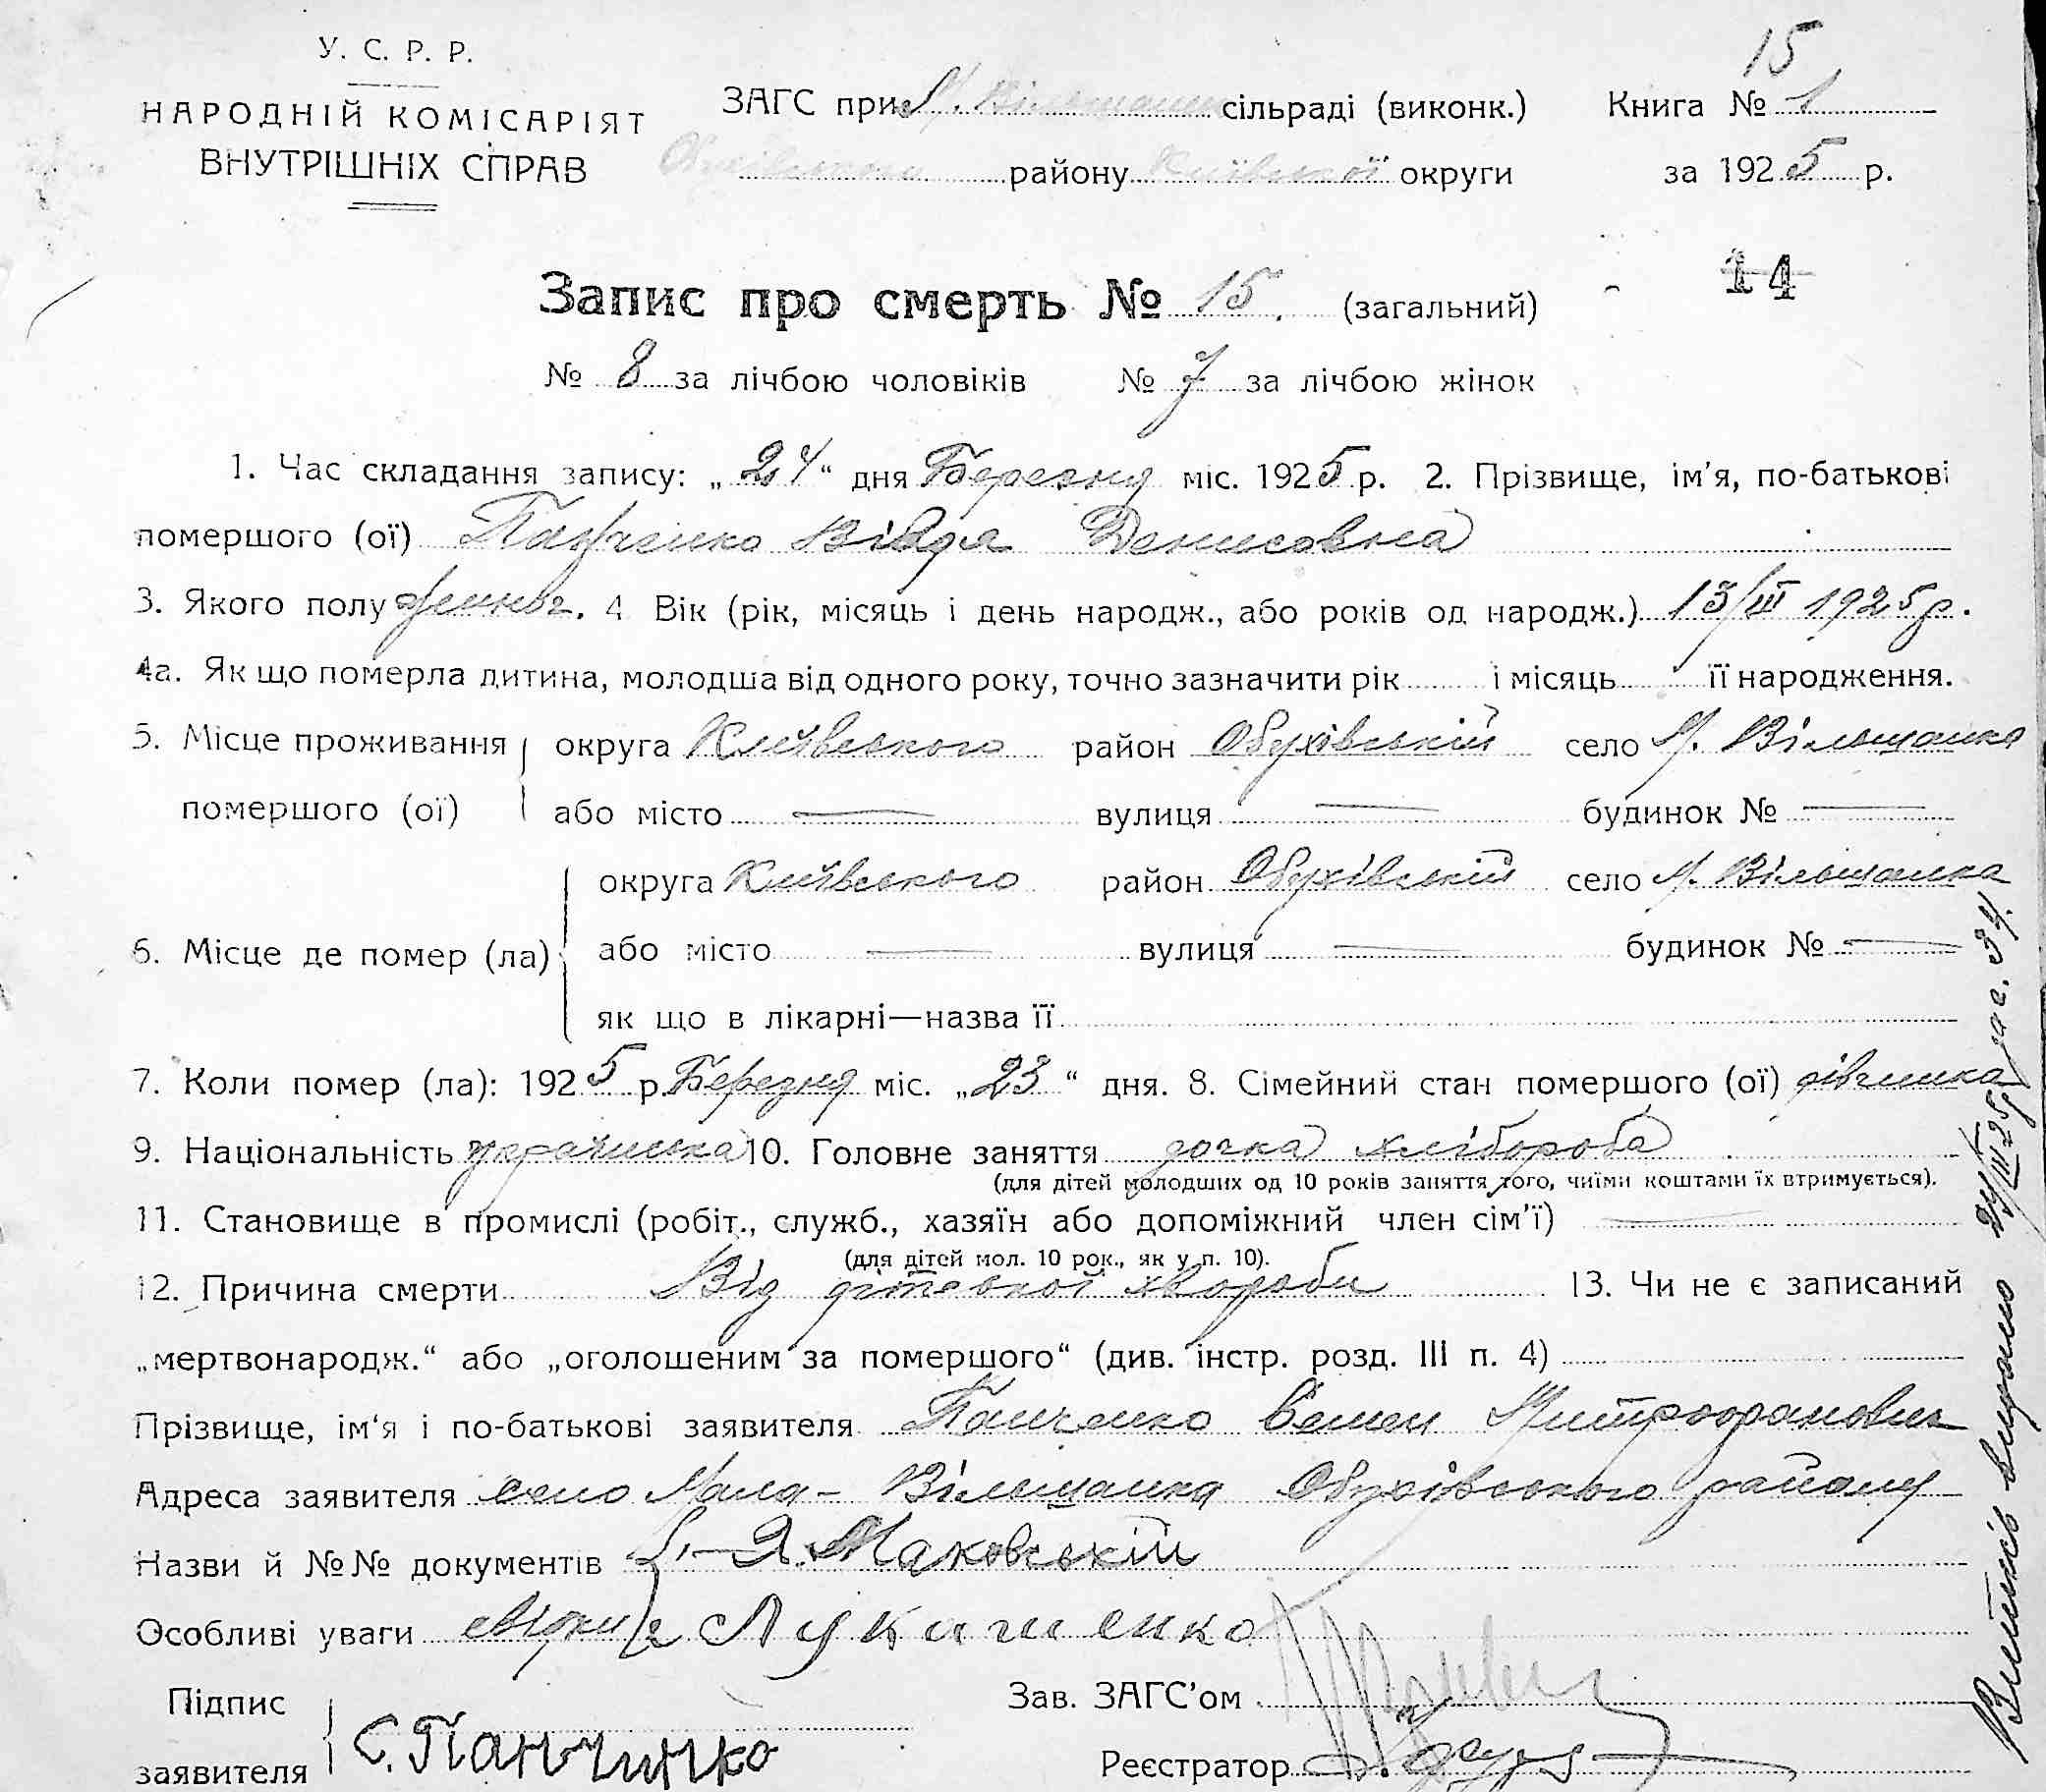 У. С. Р. Р.
НАРОДНІЙ КОМІСАРІЯТ
ВНУТРІШНІХ СПРАВ
15
ЗАГС при М. Вільшанск сільраді (виконк.) Книга № 1
району Київської округи за 1925 р.
14
Запис про смерть № 15. (загальний)
№ 8 за лічбою чоловіків № 7 за лічбою жінок
1. Час складання запису: „24“ дня Березня міс. 1925 р. 2. Прізвище, ім'я, по-батькові
помершого (ої) Панченко Денисовна
3. Якого полу 4 Вік (рік, місяць і день народж., або років од народж.) 13/III 1925 р.
4а. Як що померла дитина, молодша від одного року, точно зазначити рік і місяць її народження.
5. Місце проживання округа Київського район Обухівській село М. Вільшанка
помершого (ої) або місто — вулиця — будинок № —
округа Київського район Обухівській село М. Вільшанка
6. Місце де помер (ла) або місто — вулиця — будинок № —
як що в лікарні—назва її
7. Коли помер (ла): 1925 р. Березня міс. „23“ дня. 8. Сімейний стан помершого (ої) дівчинка
9. Національність українка 10. Головне заняття дочка хлібороба
(для дітей молодших од 10 років заняття того, чиїми коштами їх втримується).
11. Становище в промислі (робіт., служб., хазяїн або допоміжний член сім'ї) —
(для дітей мол. 10 рок., як у п. 10).
12. Причина смерти Від дітевної хвороби 13. Чи не є записаний
„мертвонародж.“ або „оголошеним за помершого“ (див. інстр. розд. III п. 4)
Прізвище, ім'я і по-батькові заявителя Панченко Семен Митрофанович
Адреса заявителя село Мала-Вільшанка Обухівського району
Назви й №№ документів 1. Я. Маковській
Особливі уваги свідки 2 Лукашенко
Підпис
заявителя С. Панчинко
Зав. ЗАГС'ом
Реєстратор
Витпис видано 24/III 25 р. за с. 34.